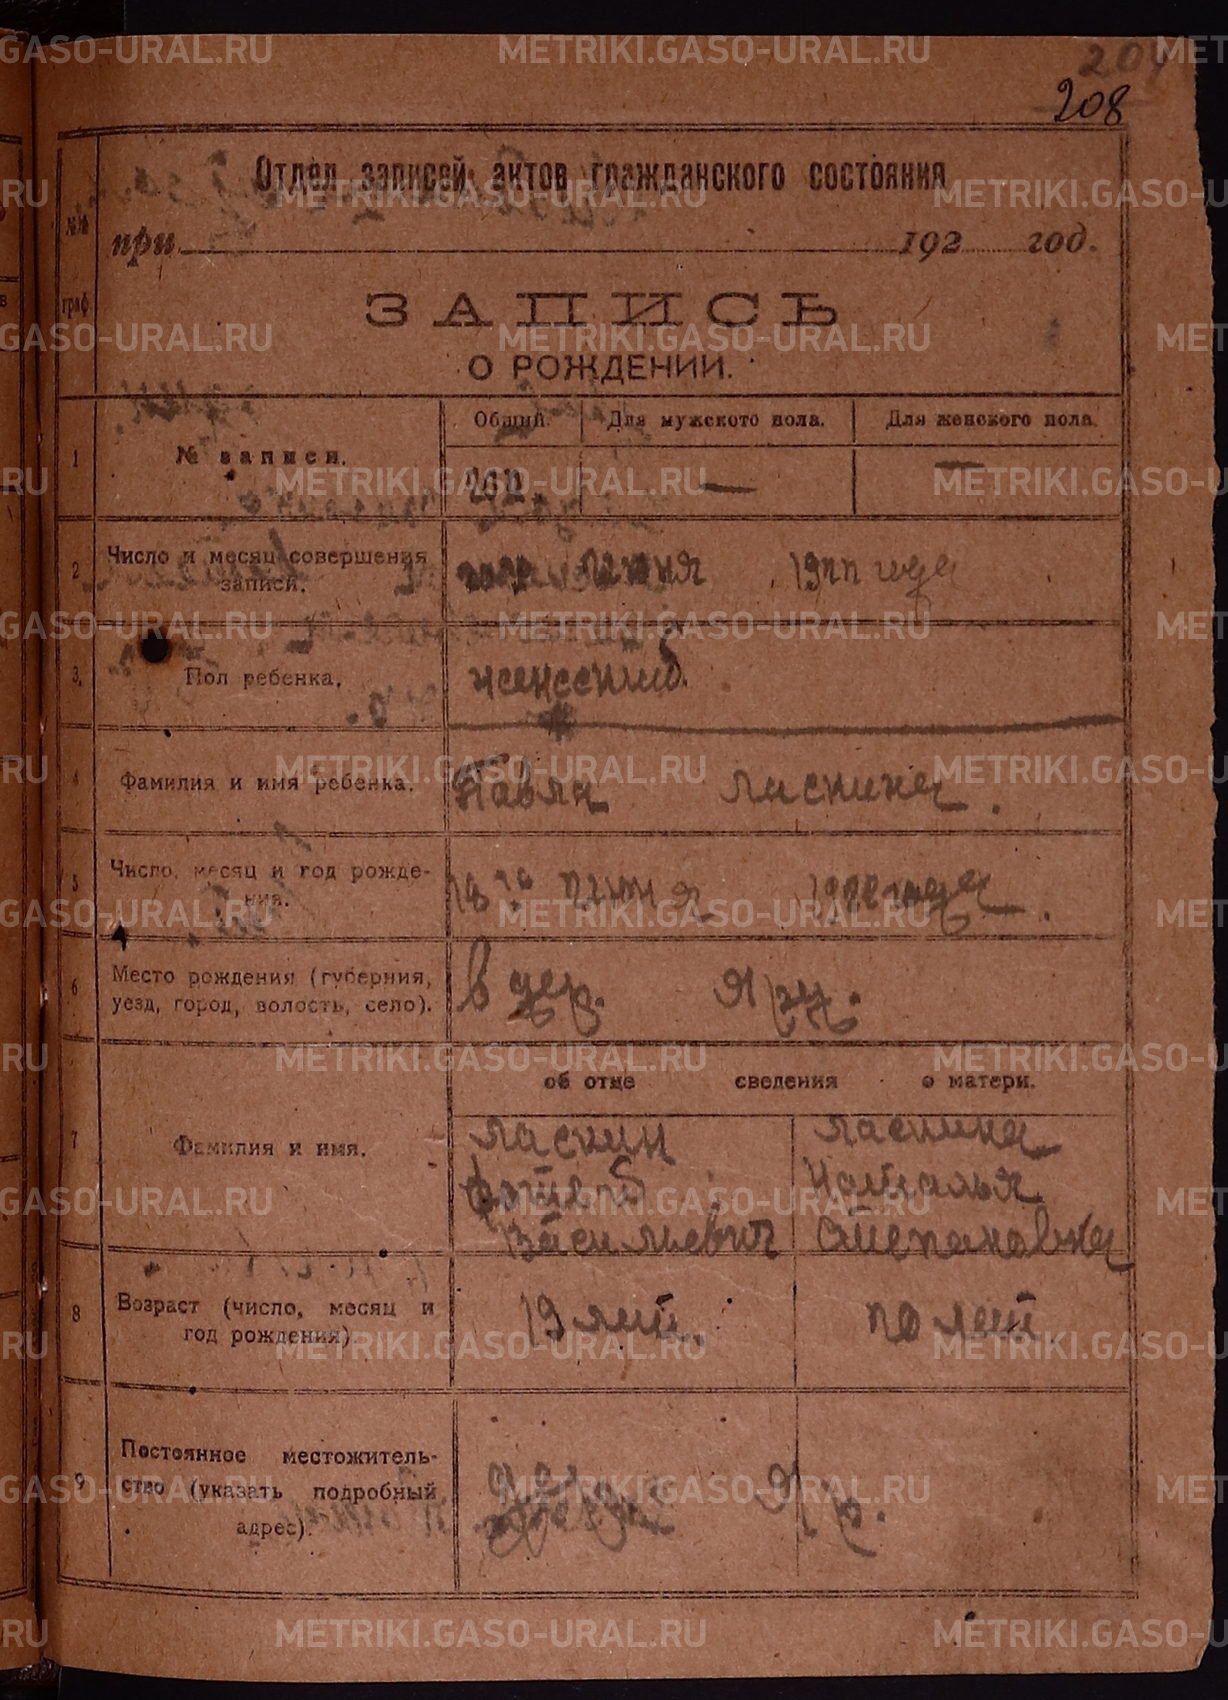 208
Отдел записей актов гражданского состояния
№№ граф
при 192 год.
ЗАПИСЬ
О РОЖДЕНИИ.
1 № записи. Общий. Для мужского пола. Для женского пола.
— —
2 Число и месяц совершения записи.
июня 1922 года
3. Пол ребенка.
женский.
4 Фамилия и имя ребенка.
Павла Ласкина.
5 Число, месяц и год рождения.
18 го июня 1922 года.
6 Место рождения (губерния, уезд, город, волость, село).
в дер.
об отце сведения о матери.
7 Фамилия и имя.
Ласкин Ласкина
Наталья
Васильевич Степановна
8 Возраст (число, месяц и год рождения)
19 лет. 20 лет
9 Постоянное местожительство (указать подробный адрес).
METRIKI.GASO-URAL.RU